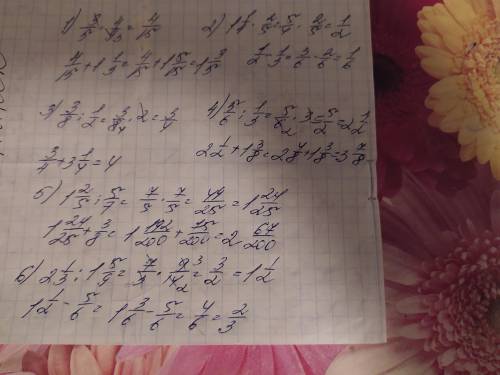 1) 3/5 · 4/9₃ = 4/15
2) 1 1/4 · 2/5 = 5/4 · 2/5 = 1/2
4/15 + 1 1/3 = 4/15 + 1 5/15 = 1 3/5
1/2 - 1/3 = 3/6 - 2/6 = 1/6
3) 3/8 : 1/2 = 3/8₄ · 2 = 3/4
4) 5/6 : 1/3 = 5/6₂ · 3 = 5/2 = 2 1/2
3/4 + 3 1/4 = 4
2 1/2 + 1 3/8 = 2 4/8 + 1 3/8 = 3 7/8
5) 1 2/5 : 5/7 = 7/5 · 7/5 = 49/25 = 1 24/25
1 24/25 + 3/8 = 1 192/200 + 75/200 = 2 67/200
6) 2 1/3 : 1 5/9 = 7/3 · 9³/14₂ = 3/2 = 1 1/2
1 1/2 - 5/6 = 1 3/6 - 5/6 = 4/6 = 2/3